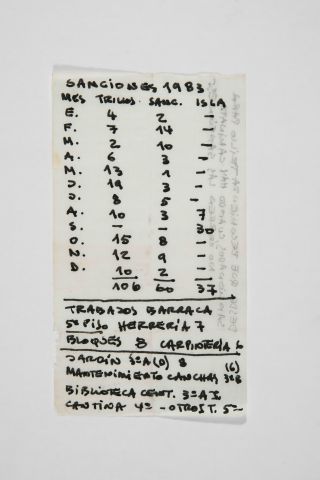 SANCIONES 1983
MES TRILLOS SANC. ISLA
E. 4 2 -
F. 7 14 -
M. 2 10 -
A. 6 3 -
M. 13 1 -
J. 19 3 -
J. 8 5 -
A. 10 3 7
S. - - 30
O. 15 8 -
N. 12 9 -
D. 10 2 -
106 60 37
TRABAJOS BARRACA
5º PISO HERRERIA 7
BLOQUES 8 CARPINTERIA 6
JARDIN 3ºA(0) 8 (6)
MANTENIMIENTO CANCHAS 3ºB
BIBLIOTECA CENT. 3ºA I.
CANTINA 4º - OTROS T. 5º